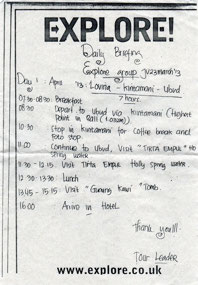 EXPLORE!
Daily Briefing
Explore group
Day 1 April '13: Lovina - Kintamani - Ubud
7 hours
07.30 - 08.30 Breakfast
08.30 Depart to Ubud via Kintamani (Highest
Point in Bali
10.30 Stop in Kintamani for Coffee break and
Foto stop
11.00 Continue to Ubud, Visit "Tirta Empul" Ho
spring water
11.30 - 12.15 Visit Tirta Empul Holly spring water
12.30 - 13.30 Lunch
13.45 - 15.15 Visit "Gunung Kawi" Tomb
16.00 Arrive in Hotel
Thank you!!!
Tour Leader
www.explore.co.uk